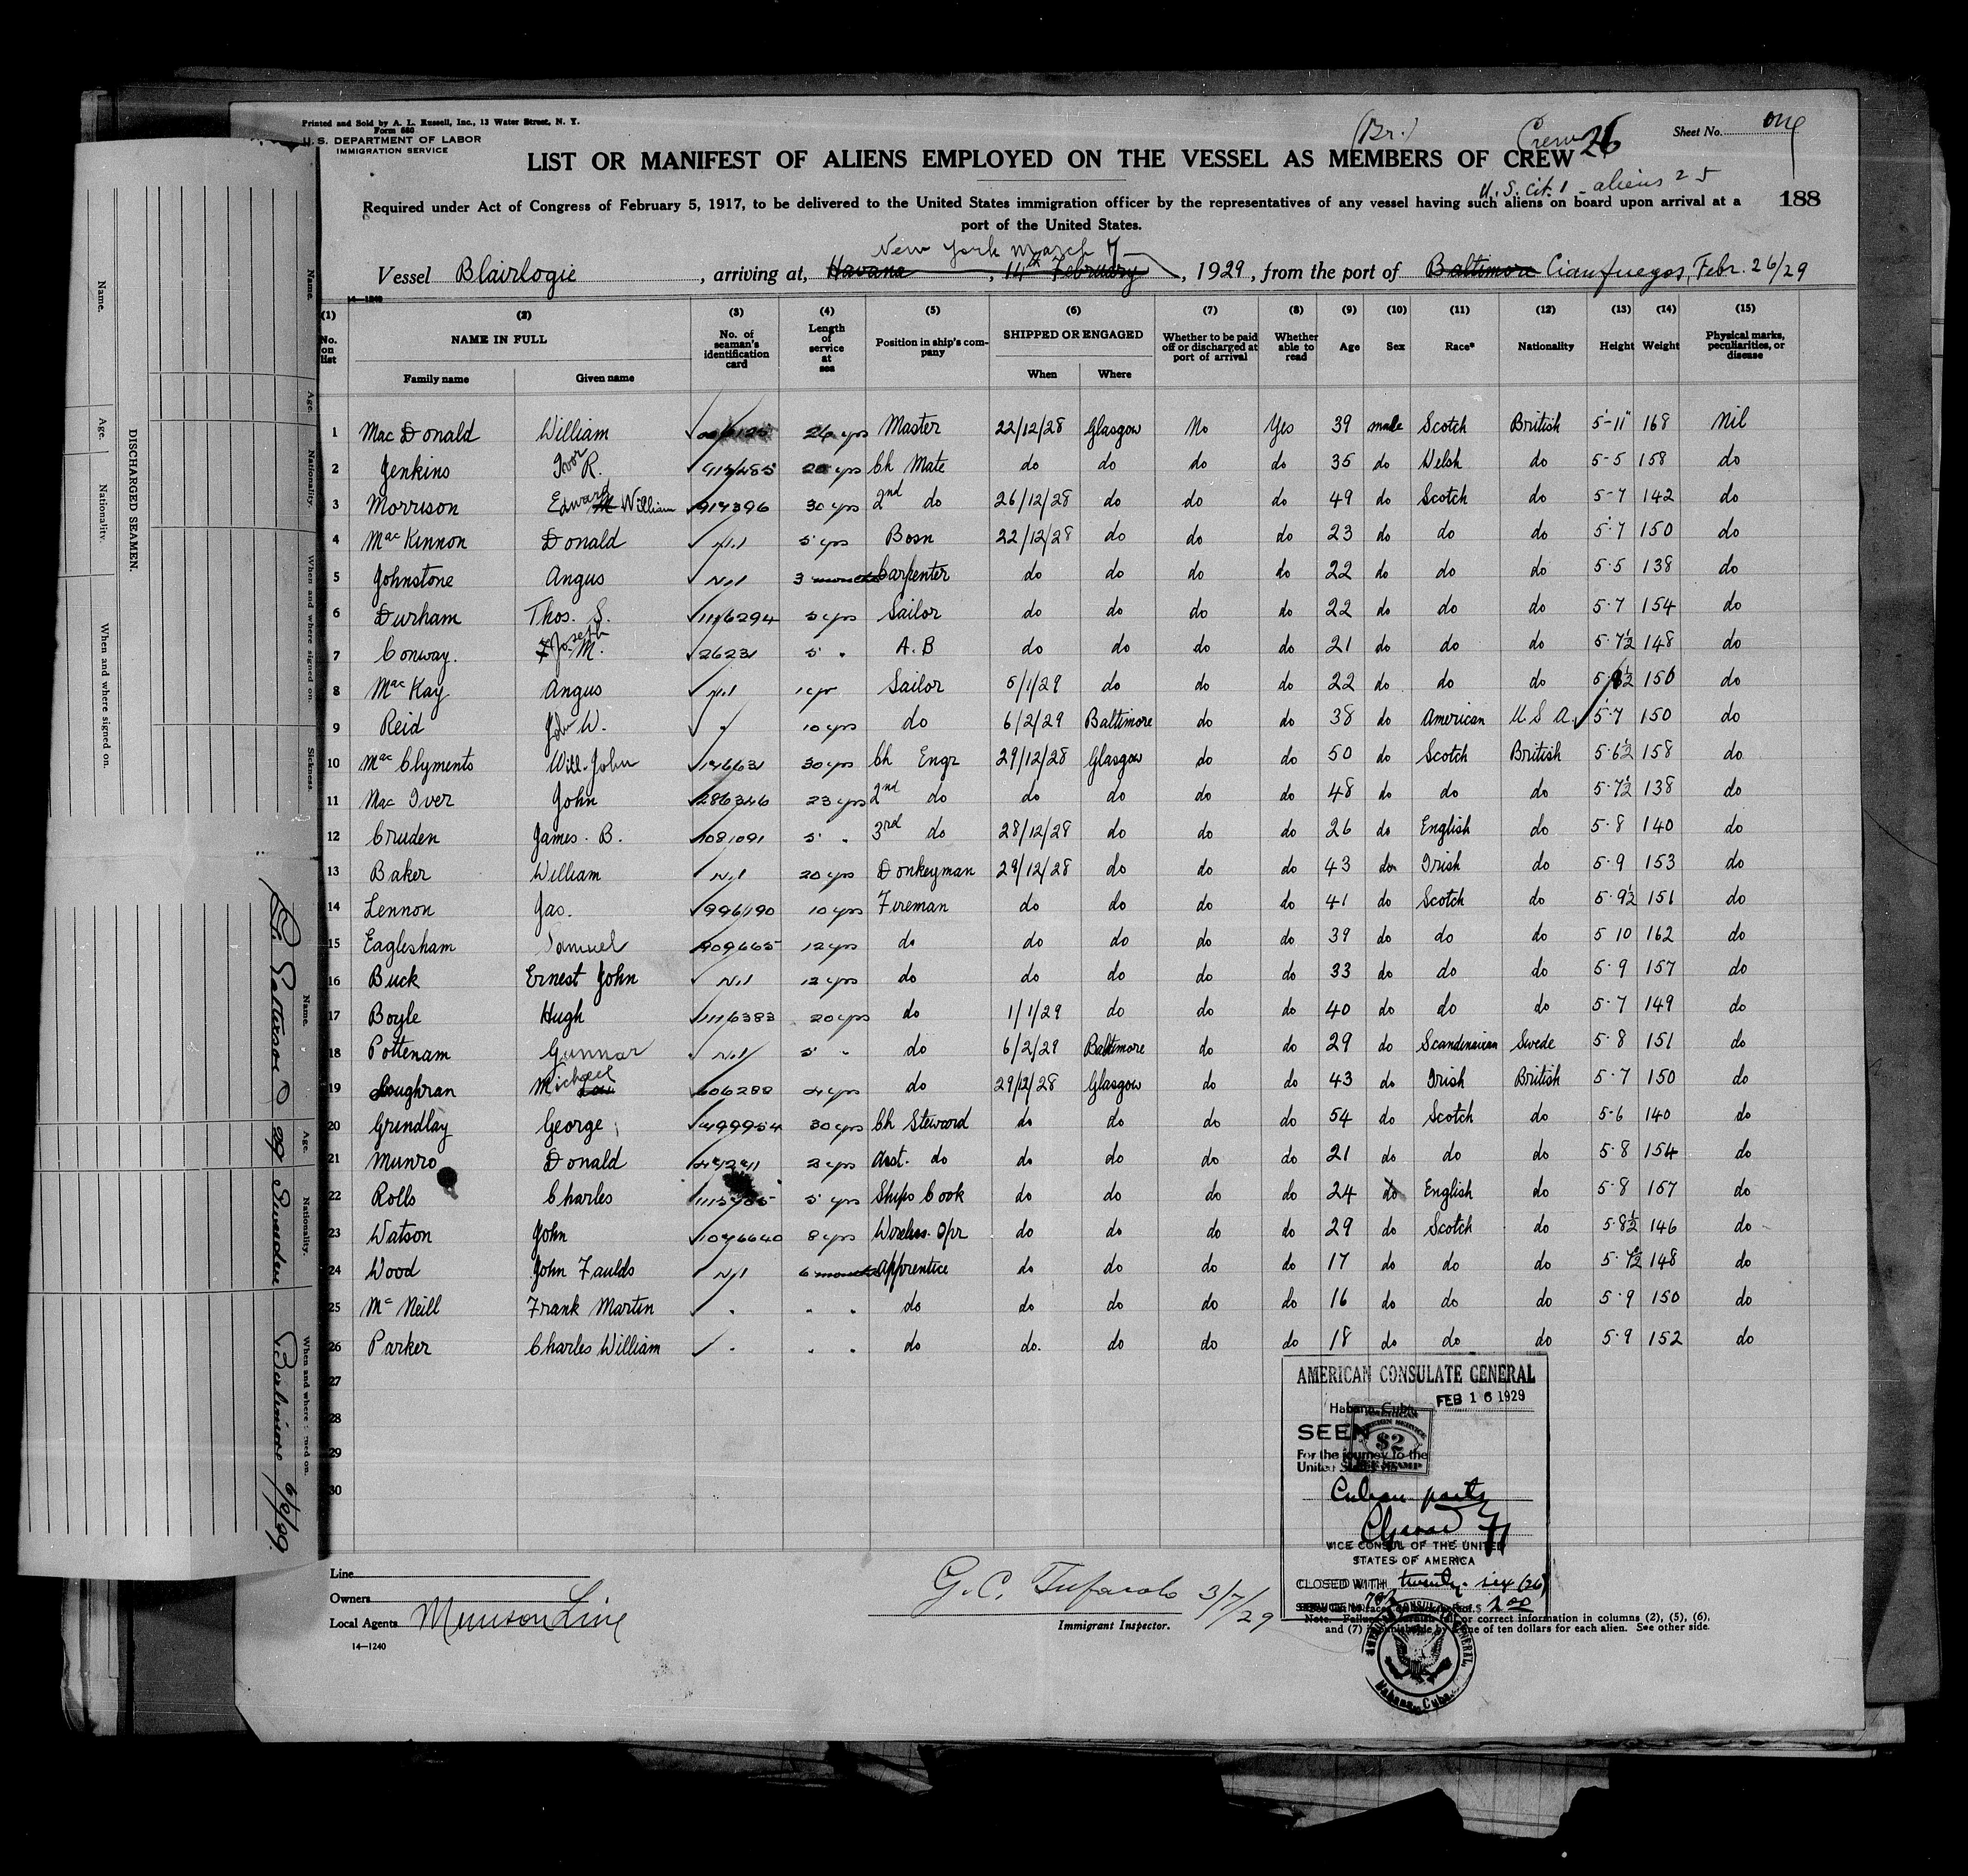 Printed and Sold by A. L. Russell, Inc., 13 Water Street, N. Y.
Form 680
U. S. DEPARTMENT OF LABOR
IMMIGRATION SERVICE
(Br.)
Crew 26
Sheet No. one
LIST OR MANIFEST OF ALIENS EMPLOYED ON THE VESSEL AS MEMBERS OF CREW
U.S. cit. 1 - aliens 25
188
Required under Act of Congress of February 5, 1917, to be delivered to the United States immigration officer by the representatives of any vessel having such aliens on board upon arrival at a
port of the United States.
New York March 7
Vessel Blairlogie, arriving at, Havana, 14th February, 1929, from the port of Baltimore Cianfuegos, Febr. 26/29
14—1240
(1) (2) (3) (4) (5) (6) (7) (8) (9) (10) (11) (12) (13) (14) (15)
No. on list NAME IN FULL No. of seaman's identification card Length of service at sea Position in ship's company SHIPPED OR ENGAGED Whether to be paid off or discharged at port of arrival Whether able to read Age Sex Race* Nationality Height Weight Physical marks, peculiarities, or disease
Family name Given name When Where
1 MacDonald William 24 yrs Master 22/12/28 Glasgow No Yes 39 male Scotch British 5'-11" 168 Nil
2 Jenkins Ivor R. 20 yrs Ch Mate do do do do 35 do Welsh do 5-5 158 do
3 Morrison Edward William 914396 30 yrs 2nd do 26/12/28 do do do 49 do Scotch do 5-7 142 do
4 MacKinnon Donald Nil 5 yrs Bosn 22/12/28 do do do 23 do do do 5·7 150 do
5 Johnstone Angus Nil 3 months Carpenter do do do do 22 do do do 5·5 138 do
6 Durham Thos. S. 1116294 3 yrs Sailor do do do do 22 do do do 5·7 154 do
7 Conway. Joseph M. 26231 5 " A.B do do do do 21 do do do 5·7½ 148 do
8 MacKay Angus Nil 1 yr Sailor 5/1/29 do do do 22 do do do 150 do
9 Reid John W. " 10 yrs do 6/2/29 Baltimore do do 38 do American U S A. 5·7 150 do
10 MacClyments Will. John 146631 30 yrs Ch Engr 29/12/28 Glasgow do do 50 do Scotch British 5·6½ 158 do
11 MacIver John 286346 23 yrs 2nd do do do do do 48 do do do 5·7½ 138 do
12 Cruden James. B. 1081091 5 " 3rd do 28/12/28 do do do 26 do English do 5·8 140 do
13 Baker William Nil 20 yrs Donkeyman 29/12/28 do do do 43 do Irish do 5·9 153 do
14 Lennon Jas. 996190 10 yrs Fireman do do do do 41 do Scotch do 5·9½ 151 do
15 Eaglesham Samuel 909665 12 yrs do do do do do 39 do do do 5 10 162 do
16 Buck Ernest John Nil 12 yrs do do do do do 33 do do do 5·9 157 do
17 Boyle Hugh 1116383 20 yrs do 1/1/29 do do do 40 do do do 5·7 149 do
18 Pottenam Gunnar Nil 5 " do 6/2/29 Baltimore do do 29 do Scandinavian Swede 5·8 151 do
19 Loughran Michael 606288 4 yrs do 29/12/28 Glasgow do do 43 do Irish British 5·7 150 do
20 Grindlay George 499954 30 yrs Ch Steward do do do do 54 do Scotch do 5-6 140 do
21 Munro Donald 3 yrs Asst. do do do do do 21 do do do 5·8 154 do
22 Rolls Charles 5 yrs Ships Cook do do do do 24 do English do 5·8 157 do
23 Watson John 1046640 8 yrs Wireless. Opr do do do do 29 do Scotch do 5·8½ 146 do
24 Wood John Faulds Nil 6 months Apprentice do do do do 17 do do do 148 do
25 McNeill Frank Martin " " " do do do do do 16 do do do 5·9 150 do
26 Parker Charles William " " " do do. do do do 18 do do do 5·9 152 do
27
28
29
30
AMERICAN CONSULATE GENERAL
Habana, Cuba. FEB 16 1929
SEEN
$2
For the journey to the
United States
Cuban ports
VICE CONSUL OF THE UNITED
STATES OF AMERICA
CLOSED WITH twenty-six (26)
Line
Owners
Local Agents Munson Line
14—1240
3/7/29
Immigrant Inspector.
Note.—Failure to furnish full or correct information in columns (2), (5), (6),
and (7) is punishable by a fine of ten dollars for each alien. See other side.
AMERICAN CONSULATE GENERAL
Habana, Cuba.
DISCHARGED SEAMEN.
Name. Age. Nationality. When and where signed on.
Name. Age. Nationality. When and where signed on. Sickness.
Name. Age. Nationality. When and where signed on.
29 Sweden Baltimore 6/2/29